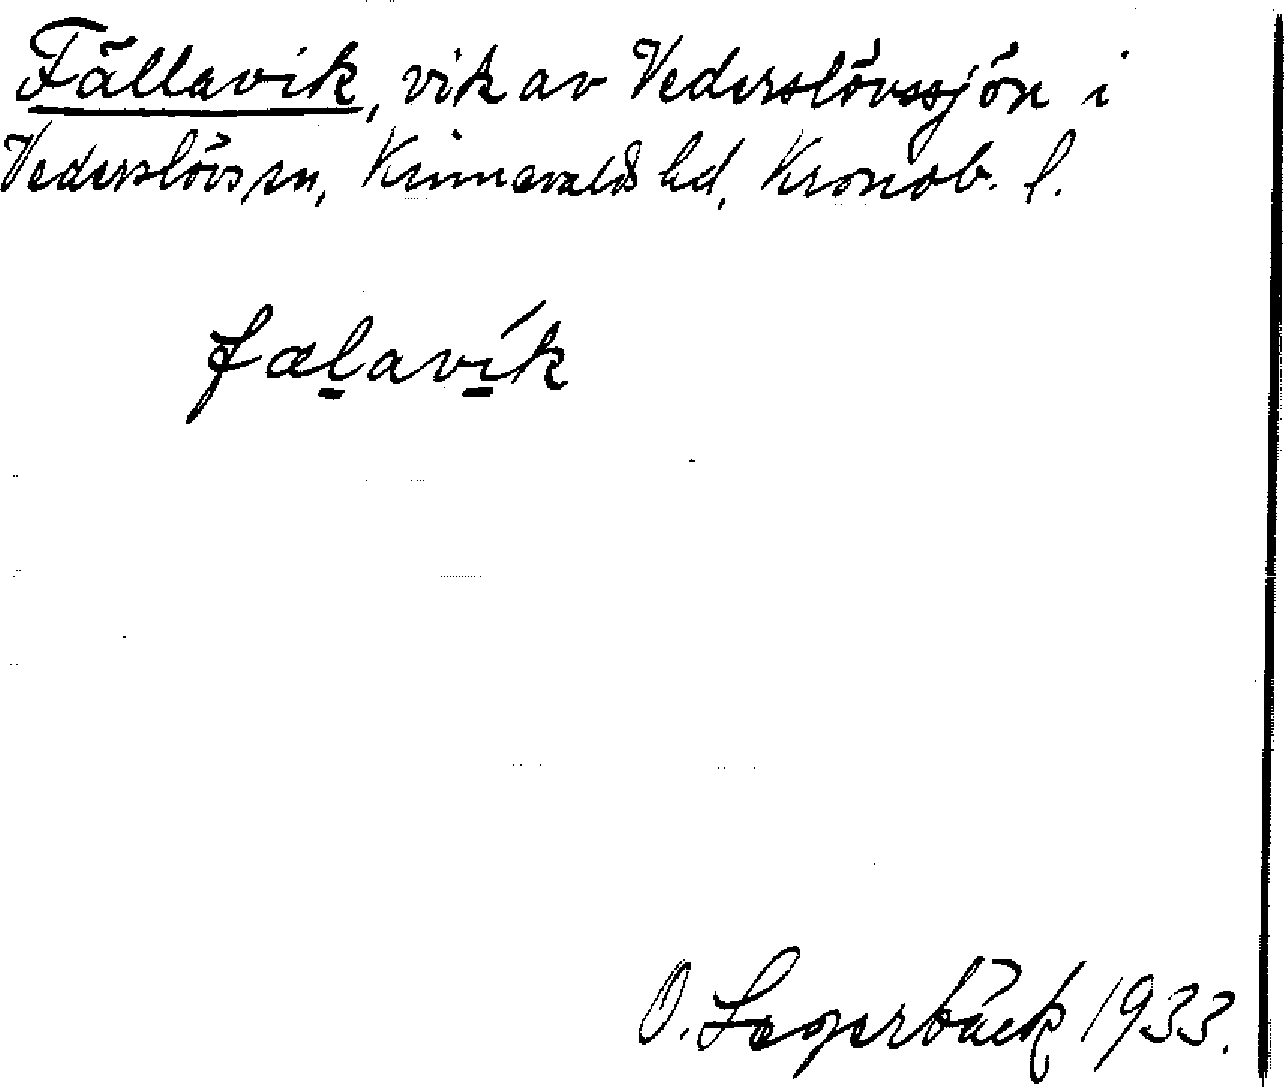 Fällavik, vik av Vederslövssjön i
Vederslövs sn, Kinnevalds hd, Kronob. l.
fælavík
O. Lagerbäck 1933.